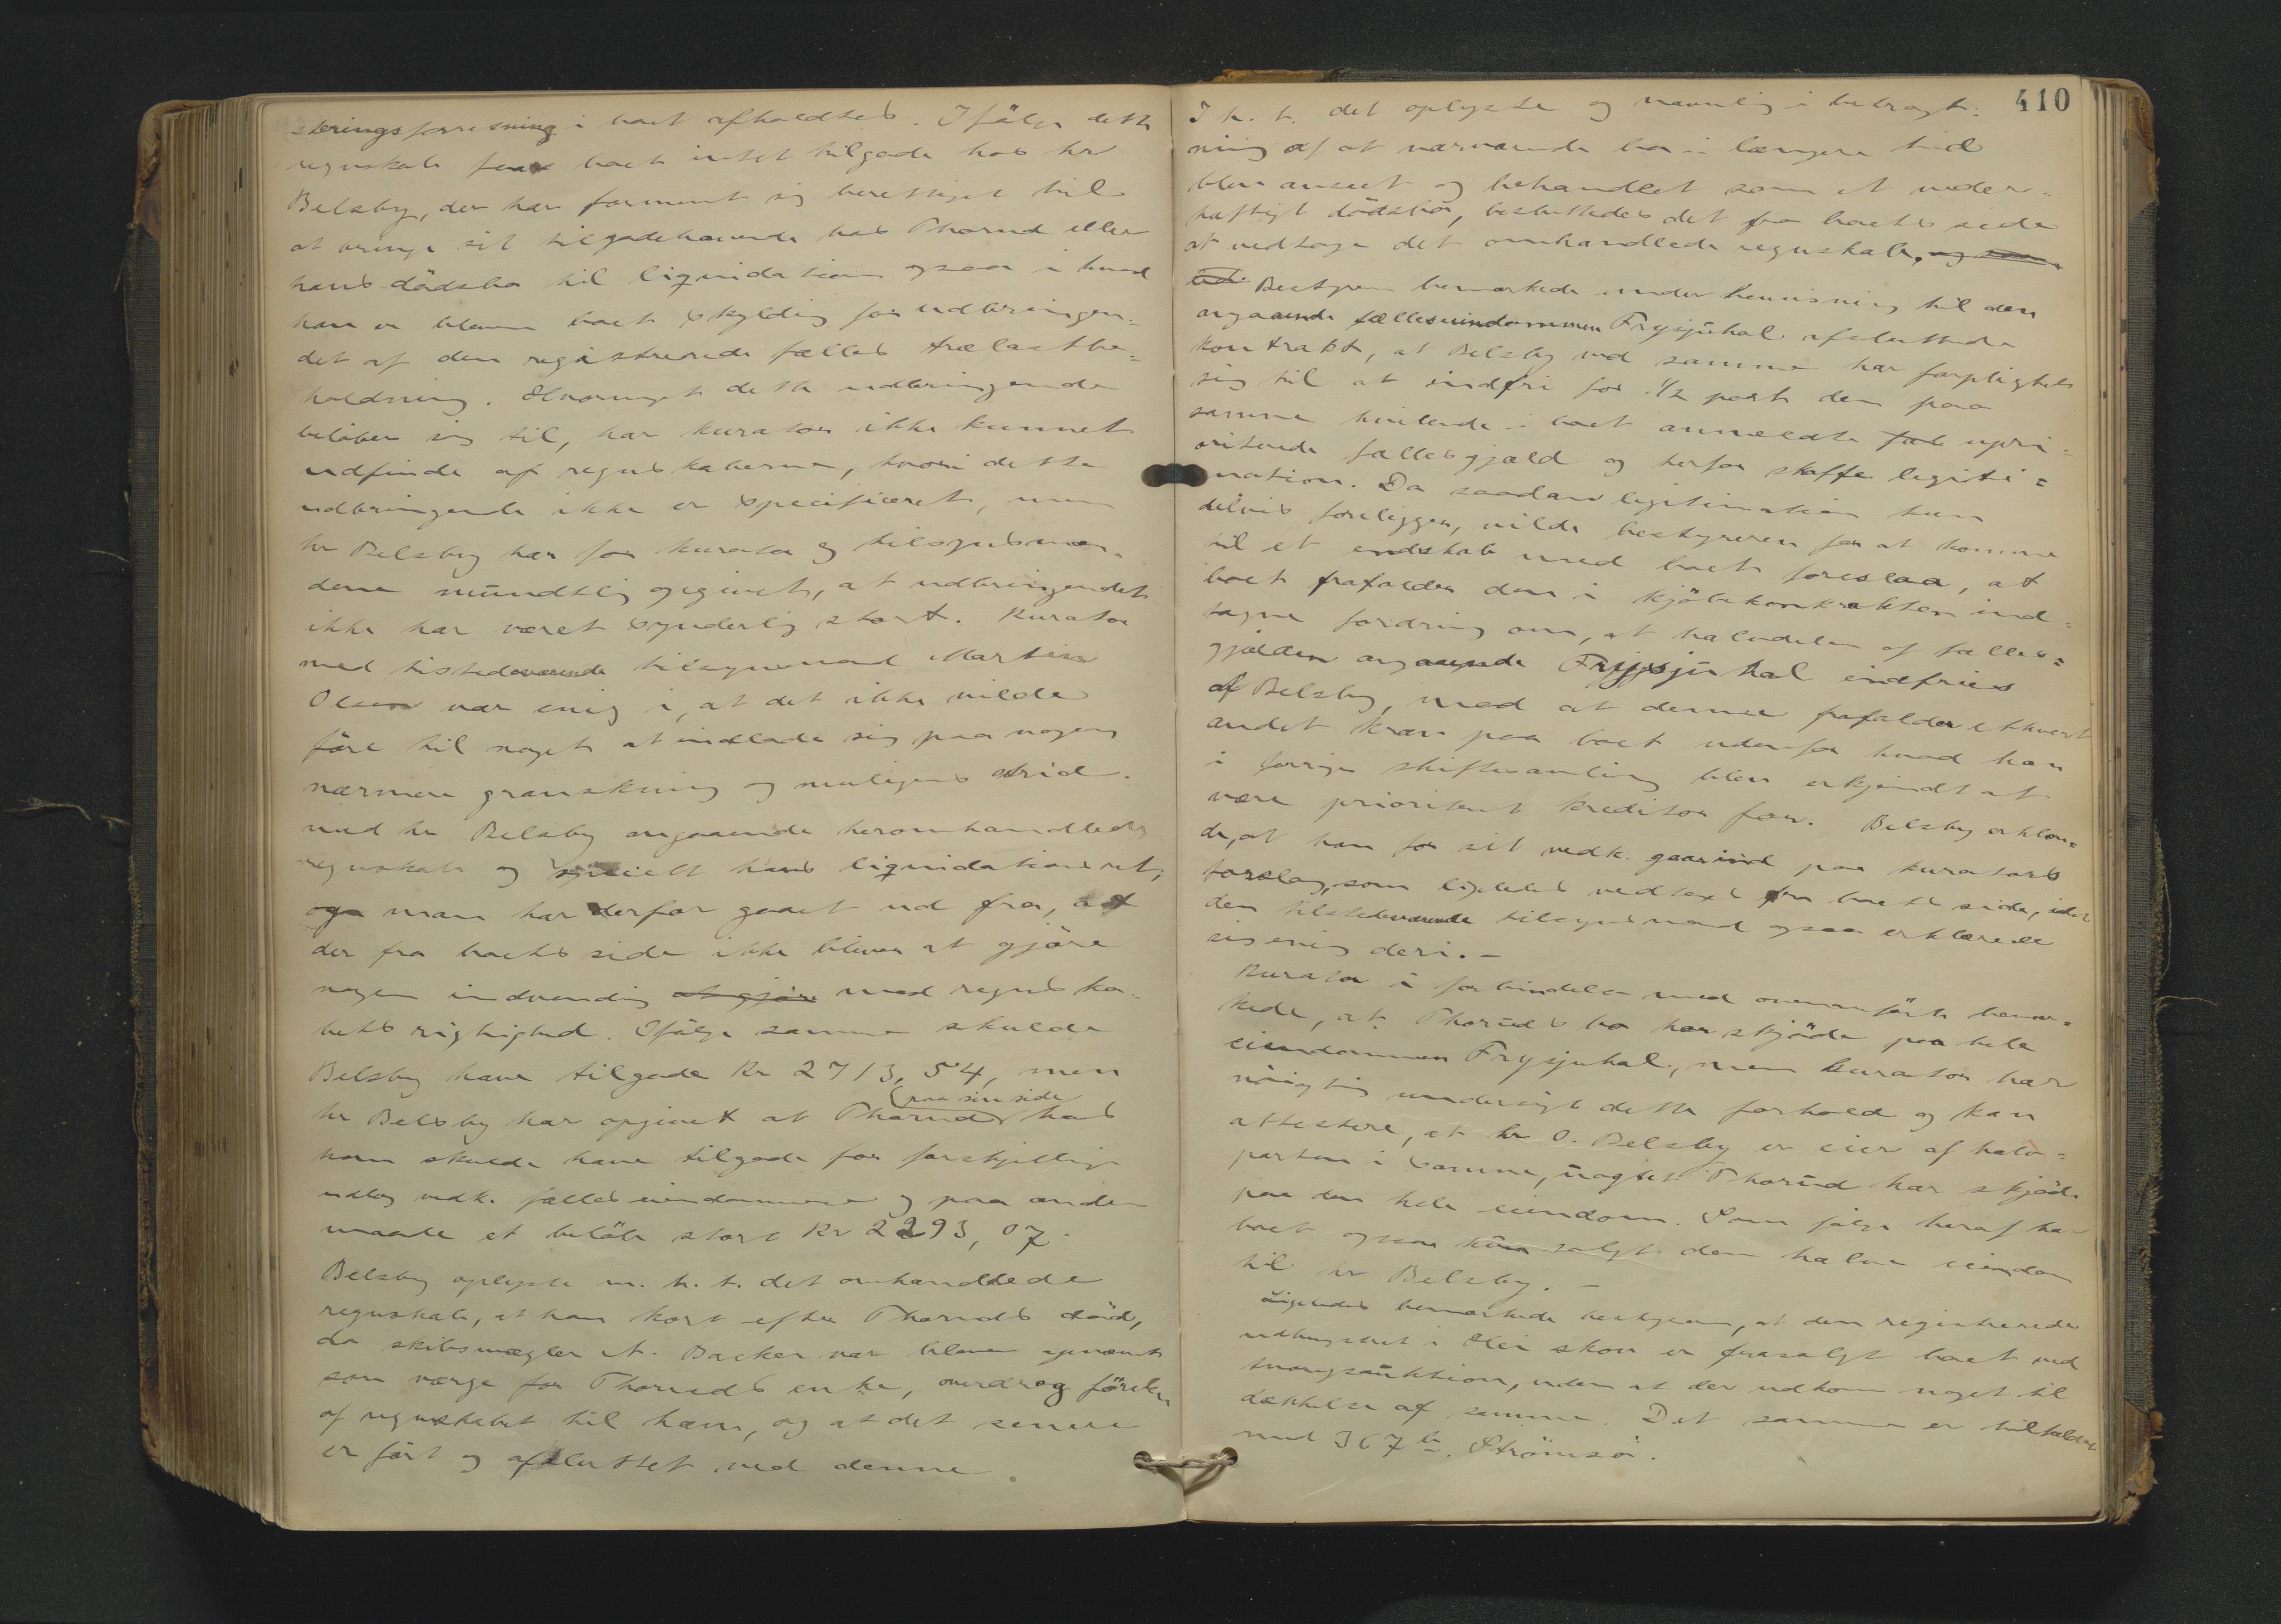 steringsforretning i boet afholdtes. Ifölge dette
regnskab faar boet intet tilgode hos hr
Belsby, der har forment sig berettiget til
at bringe sit tilgodehavende hos Thorud eller
hans dödsbo til liqvidation ogsaa i hvad
han er bleven boet skyldig for udbringen=
det af den registrerede fælles trælastbe=
holdning. Hvormeget dette udbringende
belöber sig til, har kurator ikke kunnet
udfinde af regnskaberne, hvori dette
udbringende ikke er specificeret, men
hr Belsby har for kurator og tilsynsmæn=
dene mündtlig opgivet, at udbringendet
ikke har været synderlig stort. Kurator
med tilstedeværende tilsynsmand Martin
Olsen var enig i, at det ikke vilde
före til noget at indlade sig paa nogen
nærmere granskning og muligens strid
med hr Belsby angaaende heromhandlede
regnskab og specielt hans liqvidationsret,
og man har derfor gaaet ud fra, at
der fra boets side ikke bliver at gjöre
nogen indvending at gjöre mod regnska=
bets rigtighed. Ifölge samme skulde
Belsby have tilgode Kr 2713,54, men
paa sin side
hr Belsby har opgivet at Thorud hos
ham skulde have tilgode for forskjellige
udlæg vedk. fælleseiendommene og paa anden
maade et belöb stort Kr 2293,07.
Belsby oplyste m. h. t. det omhandlede
regnskab, at han kort efter Thoruds död,
da skibsmægler A. Backer var bleven opnævnt
som værge for Thoruds enke, overdrog förelsen
af regnskabet til ham, og at det senere
er fört og afsluttet ved denne.
410
I h. t. det oplyste og navnlig i betragt=
ning af at nærværende bo i længere tid
blev anseet og behandlet som et uveder=
hæftigt dödsbo, besluttedes det fra boets side
at vedtage det omhandlede regnskab, og
Bestyren bemærkede under henvisning til den
angaaende fælleseiendommen Frysjuhal afsluttede
kontrakt, at Belsby ved samme har forpligtet
sig til at indfri for 1/2 part den paa
samme hvilende i boet anmeldte upri=
oriterede fællesgjæld og herfor skaffe legiti=
mation. Da saadan legitimation kun
delvis foreligger, vilde bestyreren for at komme
til et endskab med boet foreslaa, at
boet frafalder den i kjöbekontrakten ind=
tagne fordring om, at halvdelen af fælles=
gjælden angaaende Frysjuhal indfries
af Belsby, mod at denne frafalder ethvert
andet krav paa boet udenfor hvad han
i forrige skiftesamling blev erkjendt at
være prioriteret kreditor for. Belsby erklære=
de, at han for sit vedk. gaar ind paa kurators
forslag, som ligeledes vedtoges fra boets side, idet
den tilstedeværende tilsynsmand ogsaa erklærede
sig enig deri. –
Kurator i forbindelse med ovenanförte bemær=
kede, at Thoruds bo har skjöde paa hele
eiendommen Frysjuhal, men kurator har
nöigtig undersögt dette forhold og kan
attestere, at hr O. Belsby er eier af halv=
parten i samme, uagtet Thorud har skjöde
paa den hele eiendom. Som fölge heraf har
boet ogsaa kun solgt den halve eiendom
til hr Belsby. –
Ligeledes bemærkede bestyren, at den registrerede
udbugstret i Hei skov er frasolgt boet ved
tvangsauktion, uden at der udkom noget til
dækkelse af samme. Det samme er tilfældet
med 367 b. Strömsö.